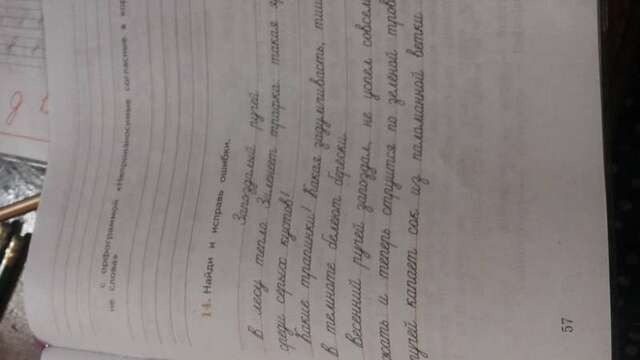 с орфограммой «Непроизносимые согласные в кор
не слова».
14. Найди и исправь ошибки.
Запоздалый ручей
В лесу тепло. Зиленеет трафка: такая я
среди серых кустов!
Какие трапинки! Какая задумчивасть, тиш
В темноте белеют берески.
Весенний ручей запоздал, не успел совсем
жать и теперь струится по зелёной трове
ручей капает сок из паломанной ветки
57